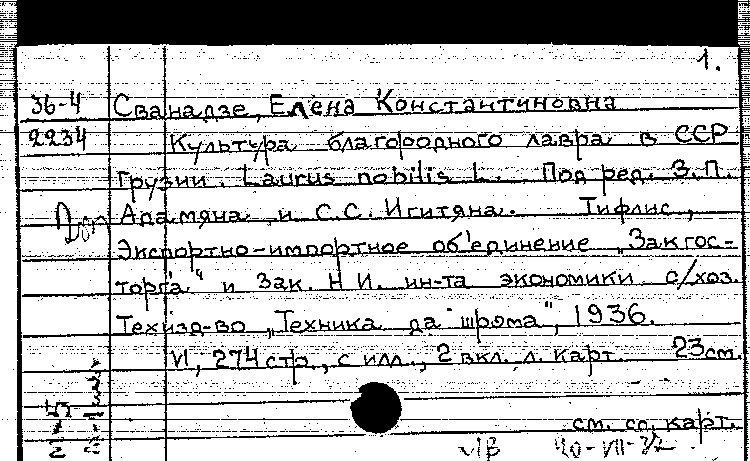 1.
36-4 Сванадзе, Елена Константиновна
2234 Культура благородного лавра в ССР
Грузии. Laurus nobilis L. Под ред. З.П.
Доп Адамяна и С.С. Игитяна. Тифлис,
Экспортно-импортное об'единение „Закгос-
торга" и Зак. Н И. ин-та экономики с/хоз.
Техизд-во „Техника да шрома", 1936.
VI, 274 стр., с илл., 2 вкл. л. карт 23см.
см. сл. карт.